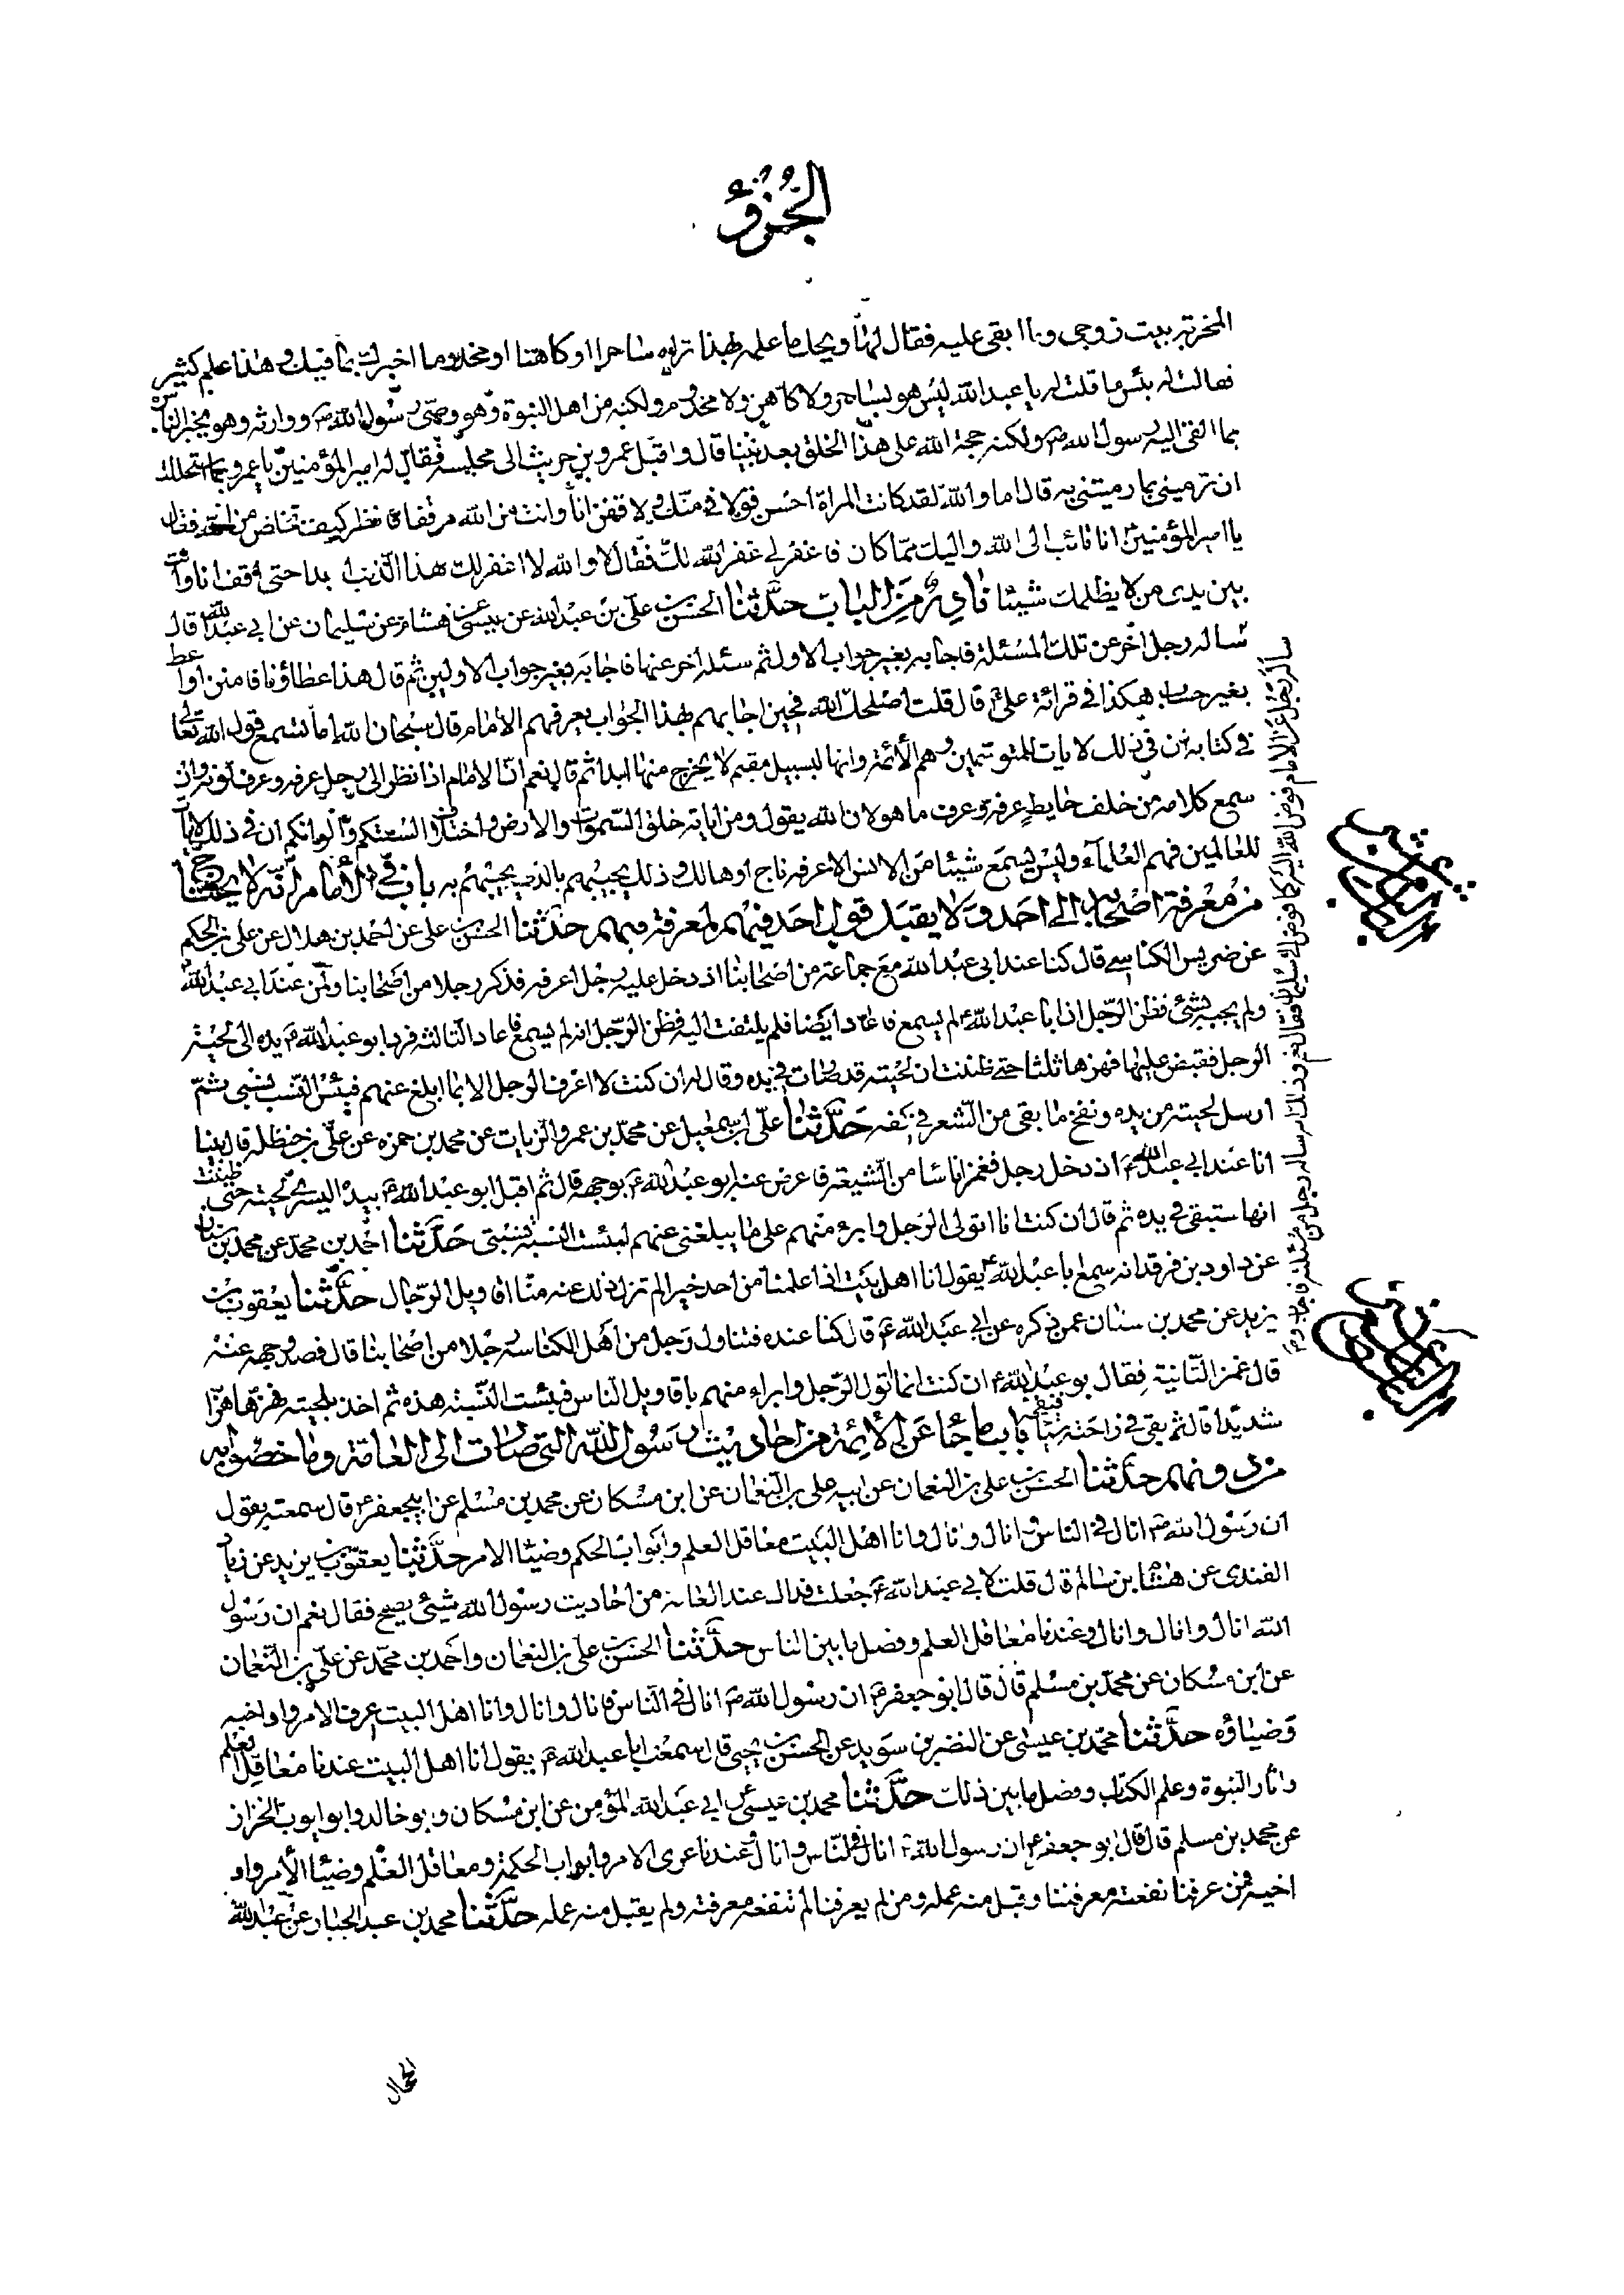 الجُزوُ
المخرته ببيت زوجى وما ابقى عليه فقال لها ويحك ما علمه بهذا تريه ساحرا او كاهنا او مخدوما اخبرك بما فيك وهذا علم كثير
فقالت له بئس ما قلت له يا عبد الله ليس هو بساحر ولا كاهن ولا مخدوم ولكنه من اهل النبوة وهو وصى رسول الله ص ووارثه وهو يخبر الناس
بما القى اليه رسول الله ص ولكنه حجة الله على هذا الخلق بعد نبينا قال واقبل عمرو بن حريث الى مجلسه فقال له امير المؤمنين يا عمرو بما استحللت
ان ترمينى بما رميتنى به قال اما والله لقد كانت المراة احسن قولا فى منك ولاقفن انا وانت من الله موقفا فانظر كيف تخلص من الله فقال
يا امير المؤمنين انا تائب الى الله واليك مما كان فاغفر لى غفر الله لك فقال لا والله لا اغفر لك هذا الذنب ابدا حتى اقف انا وانت
بين يدى من لا يظلمك شيئا نادر من الباب حدّثنا الحسن بن على بن عبد الله عن عيسى بن هشام عن سليمان عن ابى عبد الله قال
ساله رجل اخر عن تلك المسئلة فاجابه بغير جواب الاول ثم سئله اخر عنها فاجابه بغير جواب الاولين ثم قال هذا عطاؤنا فامنن او اعط
بغير حساب هكذا فى قرائة على قال قلت اصلحك الله فحين اجابهم بهذا الجواب يعرفهم الامام قال سبحان الله اما تسمع قول الله تعالى
فى كتابه ان فى ذلك لايات للمتوسمين وهم الأئمة وانها لبسبيل مقيم لا يخرج منها ابدا ثم قال نعم ان الامام اذا نظر الى رجل عرفه وعرف لونه وان
سمع كلامه من خلف حايط عرفه وعرف ما هو لان الله يقول ومن اياته خلق السموات والارض واختلاف السنتكم والوانكم ان فى ذلك لايات
للعالمين فهم العلماء وليس يسمع شيئا من الالسن الا عرفه ناج او هالك فذلك يجيبهم بالذى يجيبهم به باب فى الأمام انّه لا يحتاج
من معرفة اصحابه الى احد ولا يقبل قول احد فيهم لمعرفته بهم حدّثنا الحسن بن على عن احمد بن هلال عن على بن الحكم
عن ضريس الكناسى قال كنا عند ابى عبد الله مع جماعة من اصحابنا اذ دخل عليه رجل اعرفه فذكر رجلا من اصحابنا ونحن عند ابى عبد الله
ولم يجبه بشئ فظن الرجل ان ابا عبد الله لم يسمع فاعاد ايضا فلم يلتفت اليه فظن الرجل انه لم يسمع فاعاد الثالثة فرد ابو عبد الله ع يده الى لحية
الرجل فقبض عليها فهزها ثلثا حتى ظننت ان لحيته قد بانت فى يده وقال له ان كنت لا اعرف الرجل الا بما ابلغ عنهم فبئس النسب نسبى ثم
ارسل لحيته من يده ونفخ ما بقى من الشعر فى كفه حدّثنا علىّ بن اسمعيل عن محمّد بن عمرو الزيات عن محمد بن حمزه عن علىّ بن حنظلة قال بينا
انا عند ابى عبد الله ع اذ دخل رجل فغمز اناسا من الشيعة فاعرض عنه ابو عبد الله ع بوجهه قال ثم اقبل ابو عبد الله ع بيده اليسرى لحيته حتى ظننت
انها ستبقى فى يده ثم قال ان كنت انا اتولى الرجل وابرء منهم على ما يبلغنى عنهم لبئست النسبة نسبتى حدّثنا احمد بن محمد عن محمد بن سنان
عن داود بن فرقد انه سمع ابا عبد الله ع يقول انا اهل بيت اذا علمنا من احد خيرا لم تزل ذلك عنه منا اقاويل الرّجال حدّثنا يعقوب بن
يزيد عن محمد بن سنان عمن ذكره عن ابى عبد الله ع قال كنا عنده فتناول رجل من اهل الكناسة رجلا من اصحابنا قال فصد وجهه عنه
قال غمز الثانية فقال ابو عبد الله ع ان كنت انما اتولى الرّجل وابراء منهم باقاويل الناس فبئست النسبة هذه ثم اخذ بلحيته فهزها هزا
شديدا قال ثم بقى فى راحته شئ فنفخه باب ما جاء عن الأئمة من احاديث رسول الله التى صارت الى العامّة وما خصّوا به
من دونهم حدّثنا الحسن بن على بن النعمان عن ابيه على بن النعمان عن ابن مسكان عن محمد بن مسلم عن ابى جعفر ع قال سمعته يقول
ان رسول الله ص انال فى الناس وانال وانال وانا اهل البيت معاقل العلم وابواب الحكم وضياء الامر حدّثنا يعقوب بن يزيد عن زياد
القندى عن هشام بن سالم قال قلت لابى عبد الله ع جعلت فداك عند العامة من احاديث رسول الله شئ يصح فقال نعم ان رسول
الله انال وانال وانال وعندنا معاقل العلم وفصل ما بين الناس حدّثنا الحسن بن علىّ بن النعمان واحمد بن محمّد عن علىّ بن النّعمان
عن ابن مسكان عن محمّد بن مسلم قال قال ابو جعفر ع ان رسول الله ص انال فى الناس وانال وانال وانا اهل البيت عرى الامر واواخيه
وضياؤه حدّثنا محمّد بن عيسى عن النضر بن سويد عن الحسن بن يحيى قال سمعت ابا عبد الله ع يقول انا اهل البيت عندنا معاقل العلم
واثار النبوة وعلم الكتاب وفصل ما بين ذلك حدّثنا محمد بن عيسى عن ابى عبد الله المؤمن عن ابن مسكان وابو خالد وابو ايوب الخزاز
عن محمد بن مسلم قال قال ابو جعفر ع ان رسول الله ص انال فى الناس وانال وعندنا عرى الامر وابواب الحكمة ومعاقل العلم وضياء الأمر واوا
اخيه فمن عرفنا نفعته معرفتنا وقبل منه عمله ومن لم يعرفنا لم تنفعه معرفته ولم يقبل منه عمله حدّثنا محمد بن عبد الجبار عن عبد الله
سأله رجل عن الامام فوض الله اليه كما فوض الى سليمان فقال نعم وذلك انه ساله رجل من مسئلة فاجابه وم